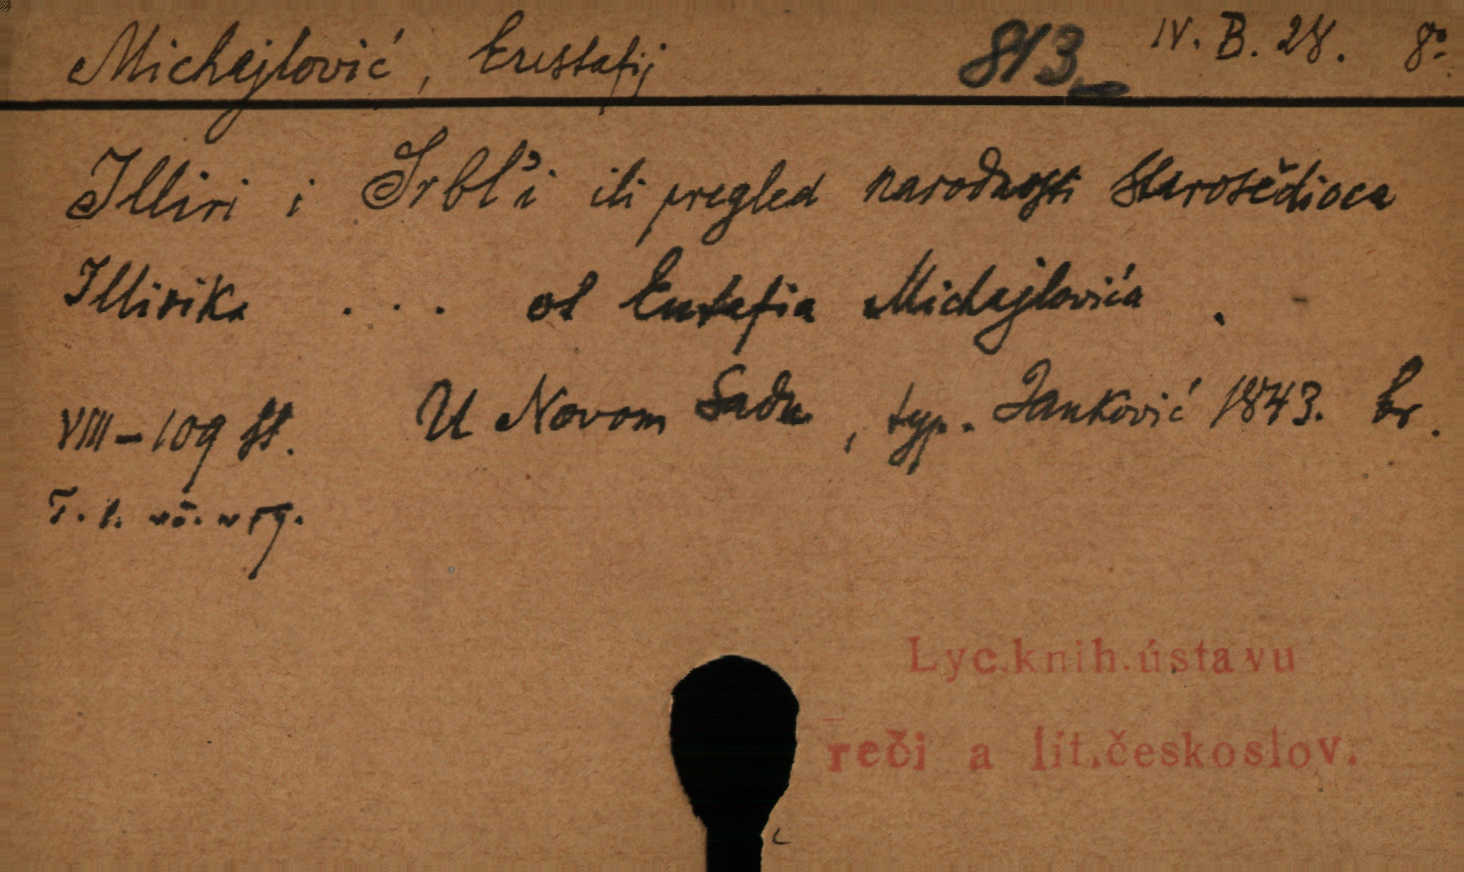 Michajlović, Eustafij 813 IV. B. 28. 8°
Illiri i Srbl'i ili pregled narodnosti starosědioca
Illirika . . . od Eustafia Michajlovića .
VIII-109 st. U Novom Sadu, typ. Janković 1843. br.
T. l.
Lyc. knih. ústavu
reči a lit. českoslov.